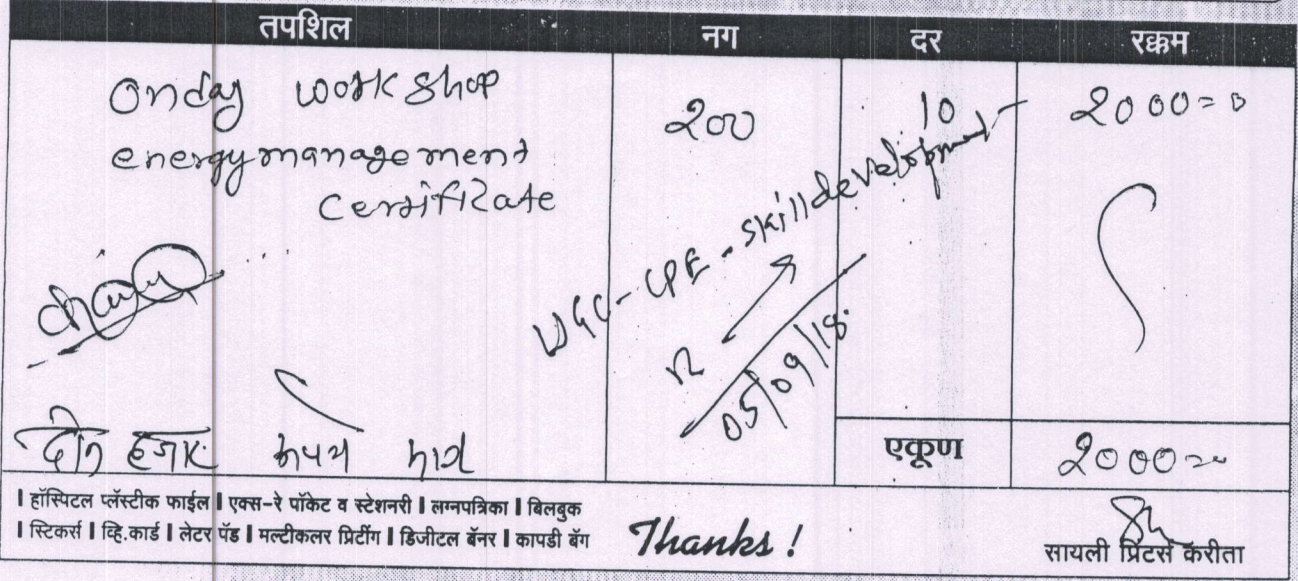 तपशिल नग दर रक्कम
Onday workshop 200 10 2000=0
energymanagement
certificate
UGC-CPE-skilldevelopment
05/09/18.
दोन हजार रुपये मात्र
एकूण 2000=00
। हॉस्पिटल प्लॅस्टीक फाईल । एक्स-रे पॉकेट व स्टेशनरी । लग्नपत्रिका । बिलबुक
। स्टिकर्स । व्हि.कार्ड । लेटर पॅड । मल्टीकलर प्रिटींग । डिजीटल बॅनर । कापडी बॅग
Thanks !
सायली प्रिंटर्स करीता